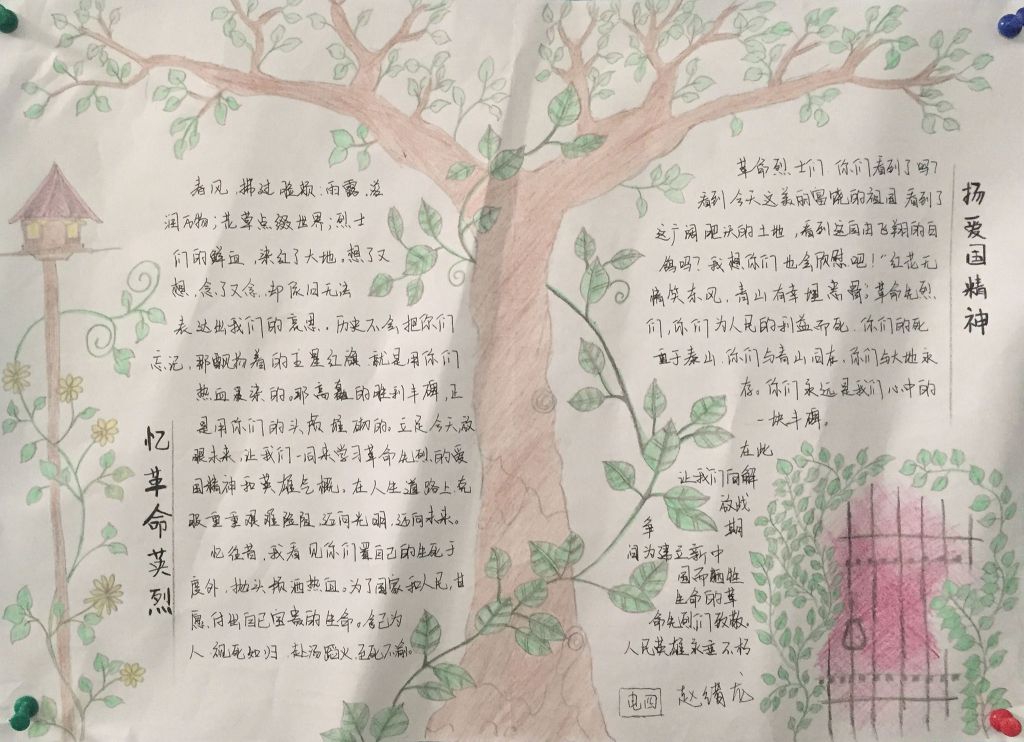 忆革命英烈
春风,拂过脸颊;雨露,滋
润万物;花草点缀世界;烈士
们的鲜血,染红了大地。想了又
想,念了又念,却依旧无法
表达出我们的哀思。历史不会把你们
忘记,那飘扬着的五星红旗 就是用你们
热血浸染的。那高矗的胜利丰碑,正
是用你们的头颅堆砌的。立足今天,放
眼未来,让我们一同来学习革命先烈的爱
国精神和英雄气概。在人生道路上克
服重重艰难险阻,迈向光明,迈向未来。
忆往昔,我看见你们置自己的生死于
度外,抛头颅洒热血。为了国家和人民,甘
愿付出自己宝贵的生命。舍己为
人 视死如归 赴汤蹈火 至死不渝。
扬爱国精神
革命烈士们 你们看到了吗?
看到今天这美丽富饶的祖国 看到了
这广阔肥沃的土地,看到这自由飞翔的白
鸽吗?我想你们也会欣慰吧!“红花无
情笑东风,青山有幸埋忠骨;革命先烈
们,你们为人民的利益而死,你们的死
重于泰山,你们与青山同在,你们与大地永
存。你们永远是我们心中的
一块丰碑。
在此
让我们向解
放战
争 期
间为建立新中
国而牺牲
生命的革
命先烈们致敬。
人民英雄永垂不朽
电四 赵绪龙